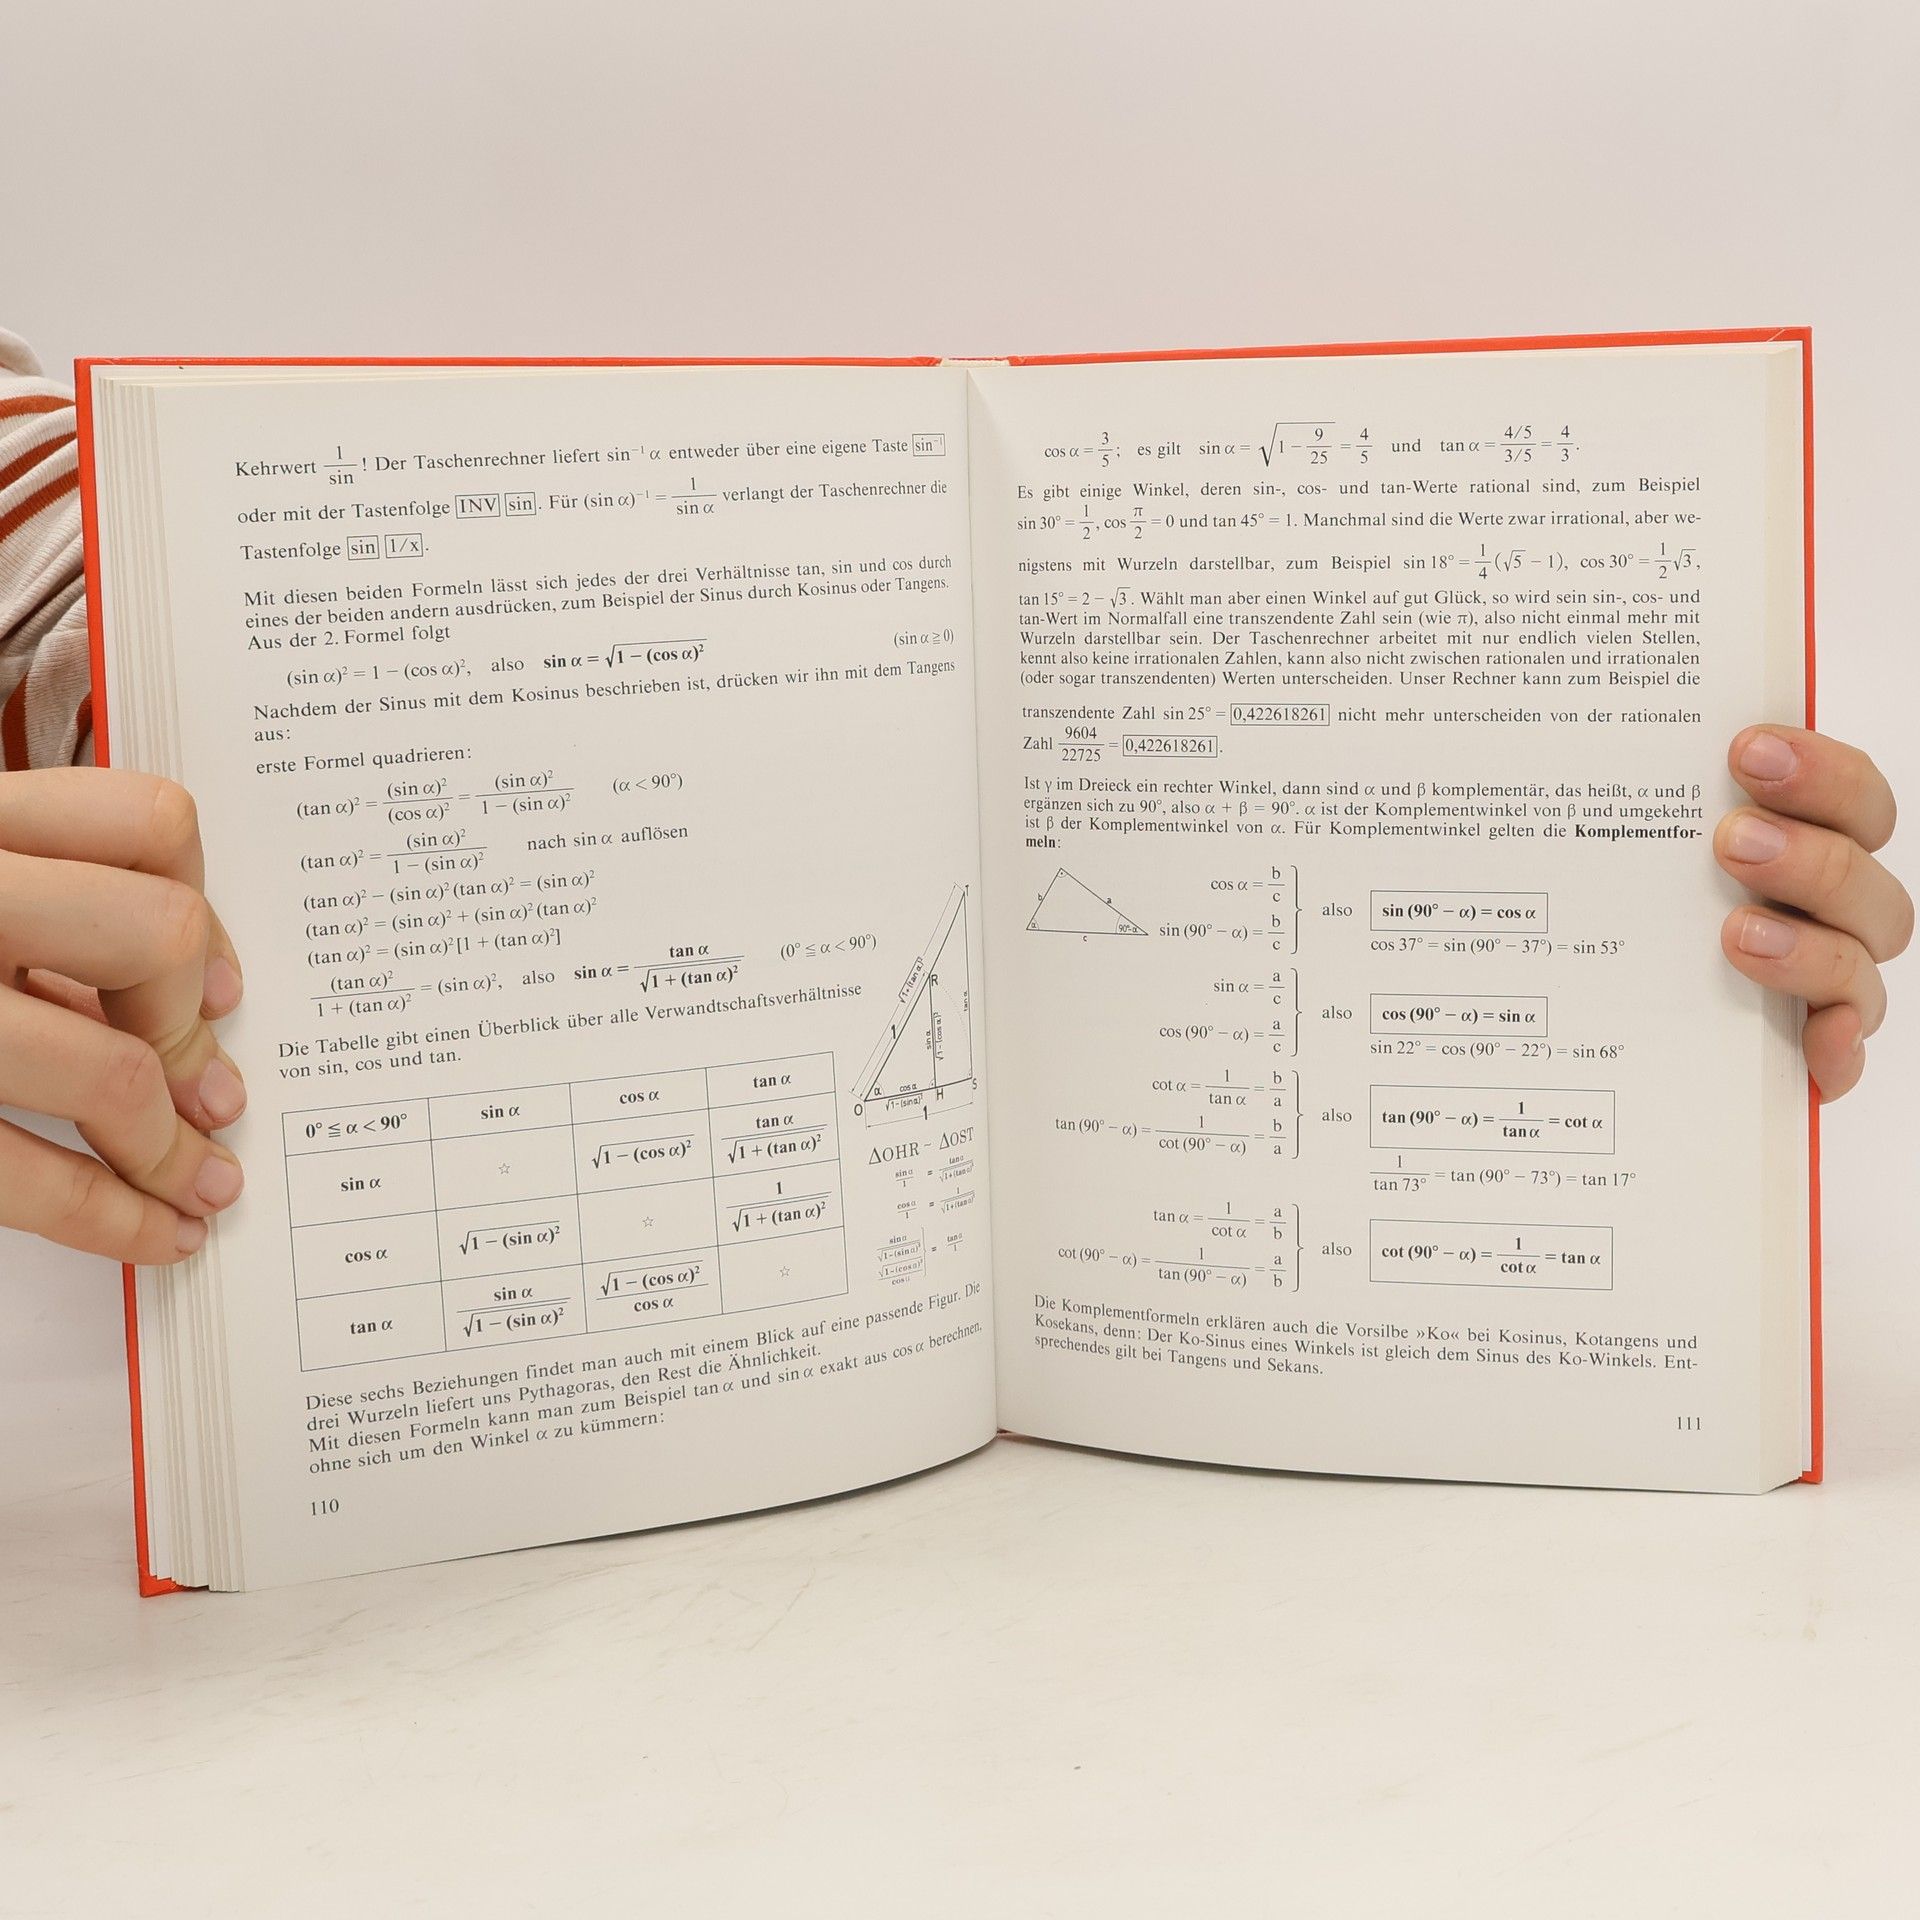 Kehrwert 1/sin ! Der Taschenrechner liefert sin⁻¹ α entweder über eine eigene Taste sin⁻¹
oder mit der Tastenfolge INV sin. Für (sin α)⁻¹ = 1/sin α verlangt der Taschenrechner die
Tastenfolge sin 1/x.
Mit diesen beiden Formeln lässt sich jedes der drei Verhältnisse tan, sin und cos durch
eines der beiden andern ausdrücken, zum Beispiel der Sinus durch Kosinus oder Tangens.
Aus der 2. Formel folgt
(sin α)² = 1 − (cos α)², also sin α = √(1 − (cos α)²) (sin α ≧ 0)
Nachdem der Sinus mit dem Kosinus beschrieben ist, drücken wir ihn mit dem Tangens
aus:
erste Formel quadrieren:
(tan α)² = (sin α)²/(cos α)² = (sin α)²/(1 − (sin α)²) (α < 90°)
(tan α)² = (sin α)²/(1 − (sin α)²) nach sin α auflösen
(tan α)² − (sin α)² (tan α)² = (sin α)²
(tan α)² = (sin α)² + (sin α)² (tan α)²
(tan α)² = (sin α)² [1 + (tan α)²]
(tan α)²/(1 + (tan α)²) = (sin α)², also sin α = tan α/√(1 + (tan α)²) (0° ≦ α < 90°)
Die Tabelle gibt einen Überblick über alle Verwandtschaftsverhältnisse
von sin, cos und tan.
0° ≦ α < 90° sin α cos α tan α
sin α ☆ √(1 − (cos α)²) tan α/√(1 + (tan α)²)
cos α √(1 − (sin α)²) ☆ 1/√(1 + (tan α)²)
tan α sin α/√(1 − (sin α)²) √(1 − (cos α)²)/cos α ☆
T
√(1+(tan α)²)
R
1
sin α
√(1−(cos α)²)
tan α
α
cos α
O
√(1−(sin α)²)
H
S
1
ΔOHR ~ ΔOST
sin α/1 = tan α/√(1+(tan α)²)
cos α/1 = 1/√(1+(tan α)²)
sin α/√(1−(sin α)²)
√(1−(cos α)²)/cos α
= tan α/1
Diese sechs Beziehungen findet man auch mit einem Blick auf eine passende Figur. Die
drei Wurzeln liefert uns Pythagoras, den Rest die Ähnlichkeit.
Mit diesen Formeln kann man zum Beispiel tan α und sin α exakt aus cos α berechnen,
ohne sich um den Winkel α zu kümmern:
110
cos α = 3/5; es gilt sin α = √(1 − 9/25) = 4/5 und tan α = (4/5)/(3/5) = 4/3.
Es gibt einige Winkel, deren sin-, cos- und tan-Werte rational sind, zum Beispiel
sin 30° = 1/2, cos π/2 = 0 und tan 45° = 1. Manchmal sind die Werte zwar irrational, aber we-
nigstens mit Wurzeln darstellbar, zum Beispiel sin 18° = 1/4 (√5 − 1), cos 30° = 1/2 √3,
tan 15° = 2 − √3. Wählt man aber einen Winkel auf gut Glück, so wird sein sin-, cos- und
tan-Wert im Normalfall eine transzendente Zahl sein (wie π), also nicht einmal mehr mit
Wurzeln darstellbar sein. Der Taschenrechner arbeitet mit nur endlich vielen Stellen,
kennt also keine irrationalen Zahlen, kann also nicht zwischen rationalen und irrationalen
(oder sogar transzendenten) Werten unterscheiden. Unser Rechner kann zum Beispiel die
transzendente Zahl sin 25° = 0,422618261 nicht mehr unterscheiden von der rationalen
Zahl 9604/22725 = 0,422618261.
Ist γ im Dreieck ein rechter Winkel, dann sind α und β komplementär, das heißt, α und β
ergänzen sich zu 90°, also α + β = 90°. α ist der Komplementwinkel von β und umgekehrt
ist β der Komplementwinkel von α. Für Komplementwinkel gelten die Komplementfor-
meln:
b
a
α
90°-α
c
cos α = b/c
sin (90° − α) = b/c
also sin (90° − α) = cos α
cos 37° = sin (90° − 37°) = sin 53°
sin α = a/c
cos (90° − α) = a/c
also cos (90° − α) = sin α
sin 22° = cos (90° − 22°) = sin 68°
cot α = 1/tan α = b/a
tan (90° − α) = 1/cot (90° − α) = b/a
also tan (90° − α) = 1/tan α = cot α
1/tan 73° = tan (90° − 73°) = tan 17°
tan α = 1/cot α = a/b
cot (90° − α) = 1/tan (90° − α) = a/b
also cot (90° − α) = 1/cot α = tan α
Die Komplementformeln erklären auch die Vorsilbe »Ko« bei Kosinus, Kotangens und
Kosekans, denn: Der Ko-Sinus eines Winkels ist gleich dem Sinus des Ko-Winkels. Ent-
sprechendes gilt bei Tangens und Sekans.
111